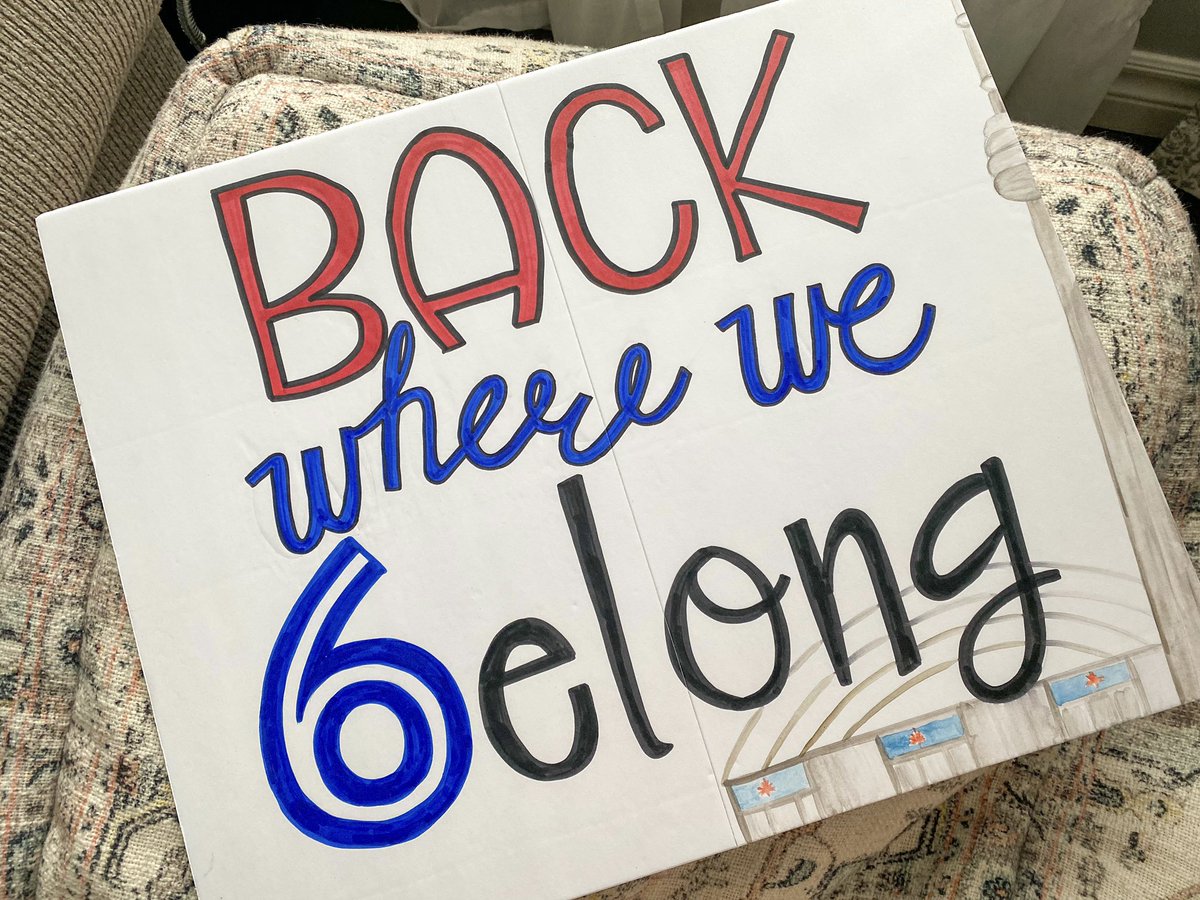 BACK
where we
6elong